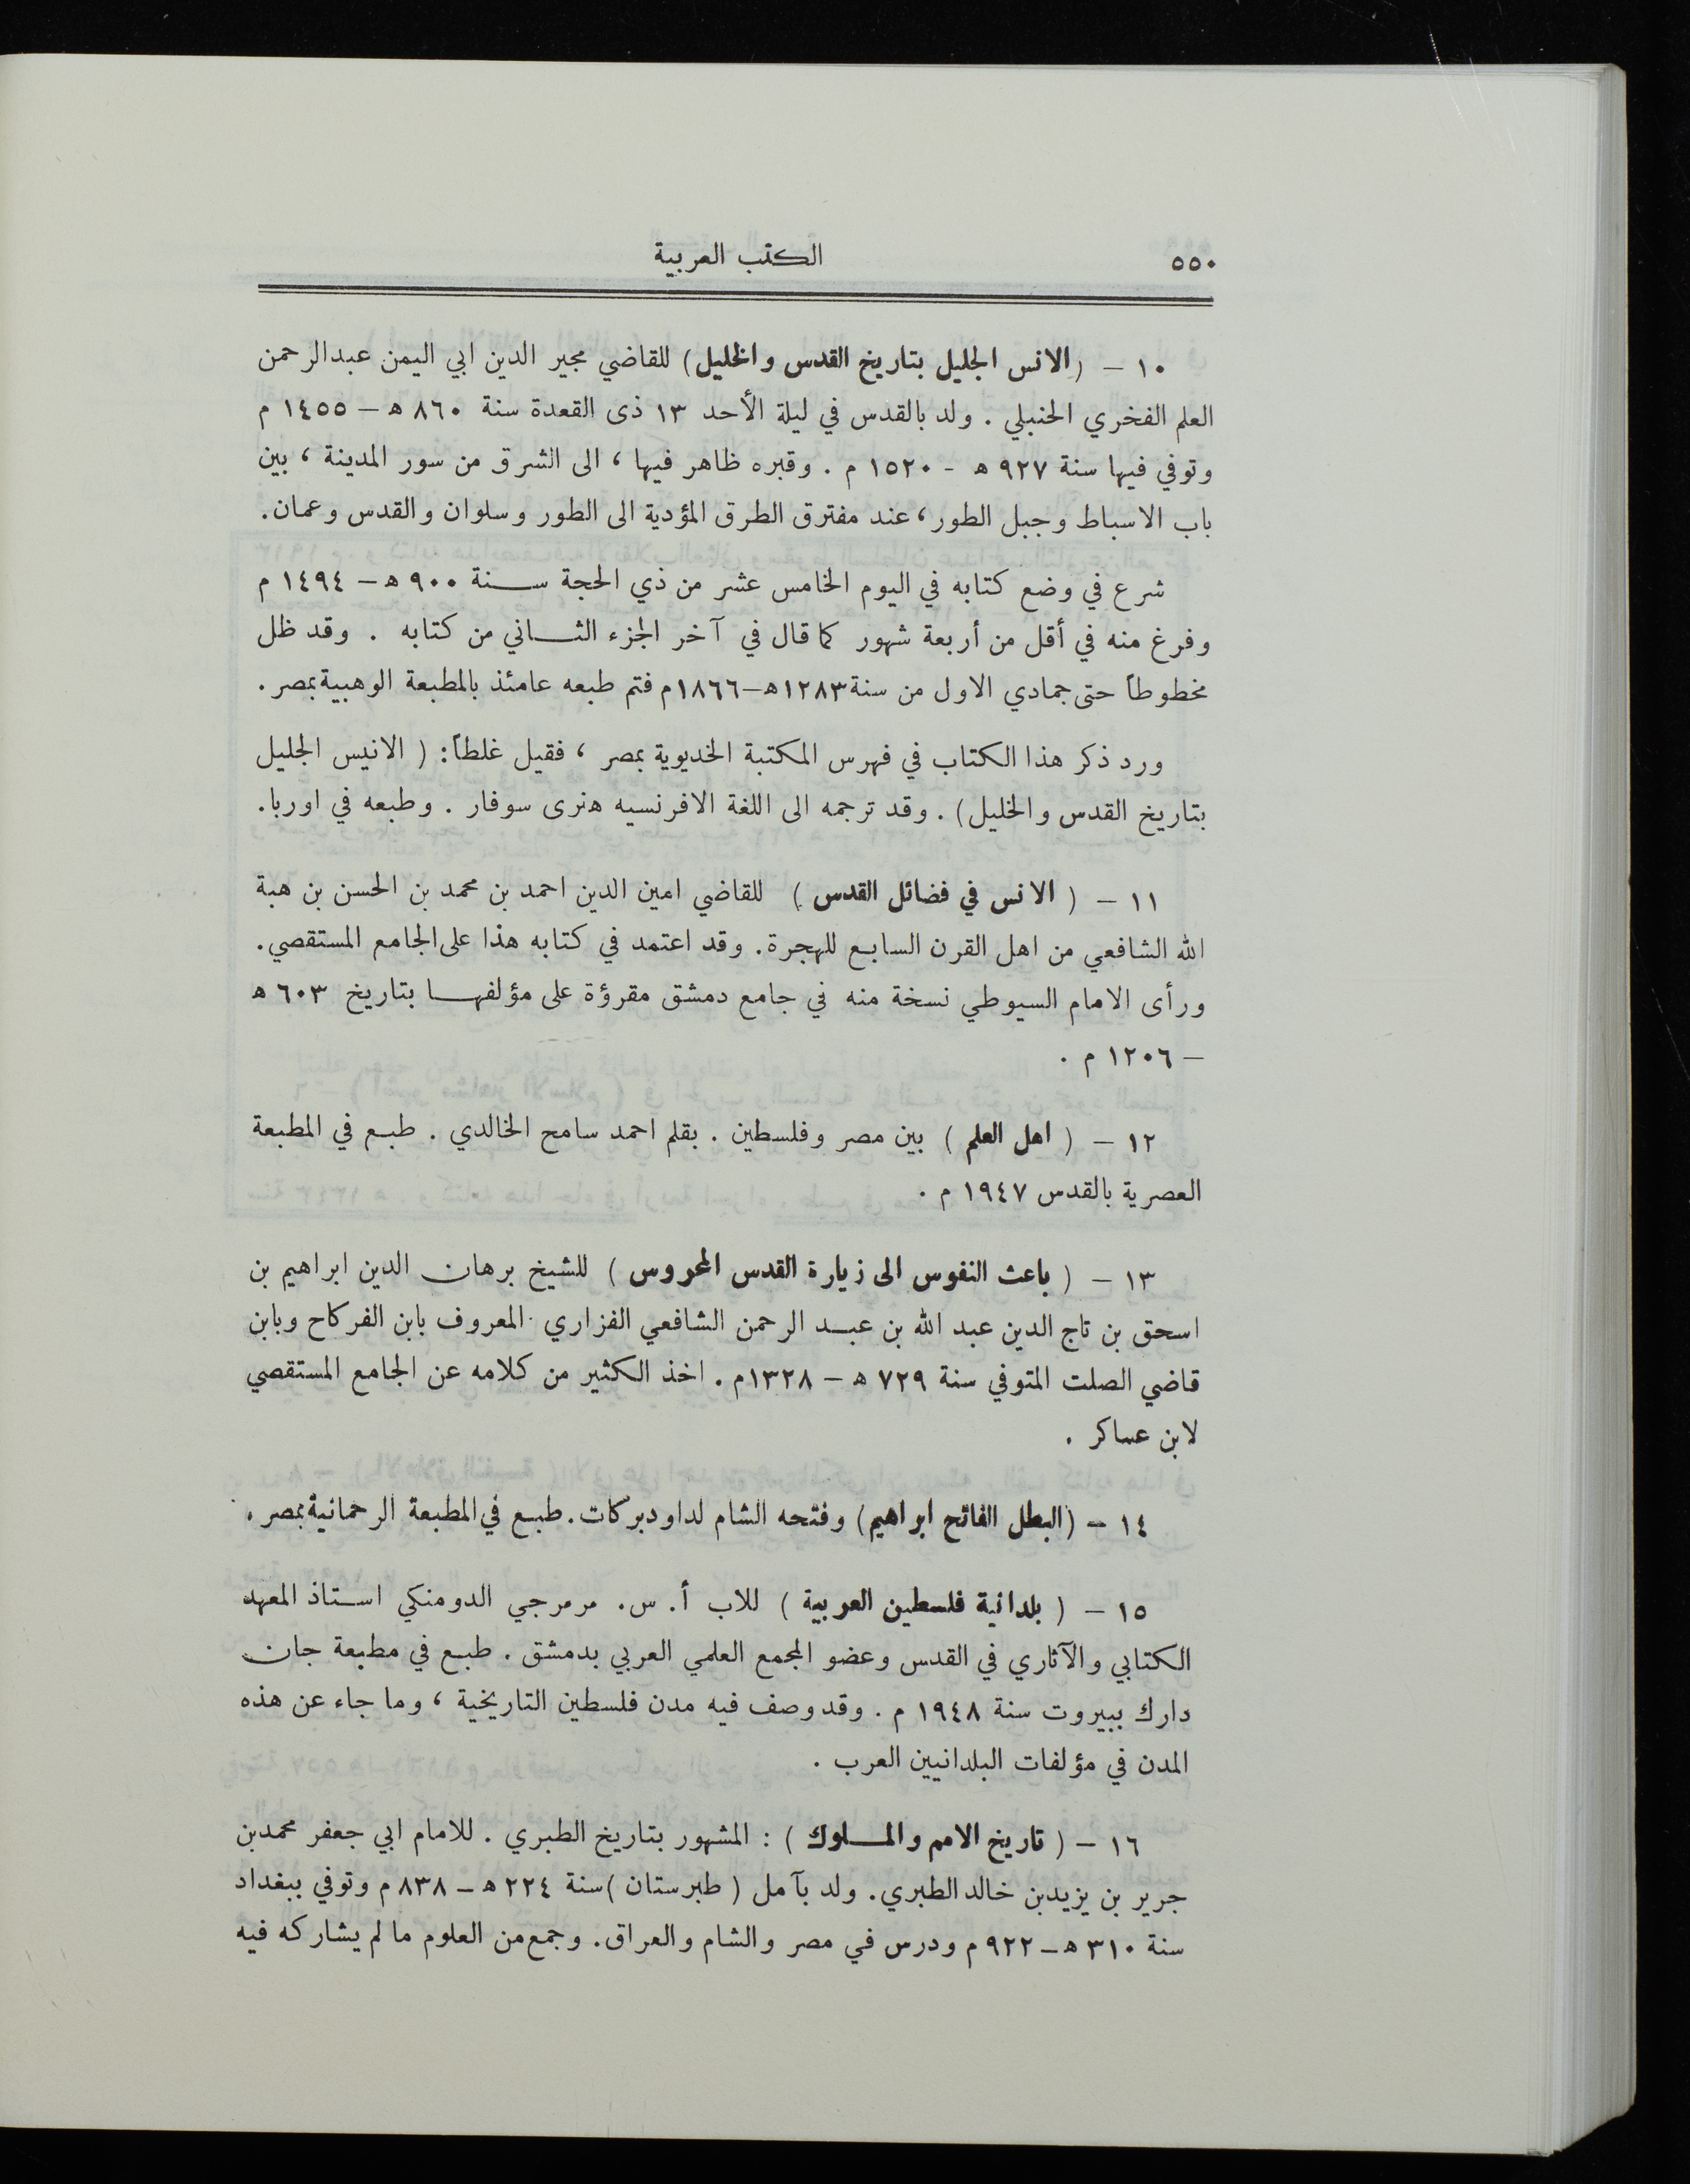 ٥٥٠
الكتب العربية
١٠ – (الانس الجليل بتاريخ القدس والخليل) للقاضي مجير الدين ابي اليمن عبدالرحمن
العلم الفخري الحنبلي . ولد بالقدس في ليلة الأحد ١٣ ذى القعدة سنة ٨٦٠ ه – ١٤٥٥ م
وتوفي فيها سنة ٩٢٧ ه - ١٥٢٠ م . وقبره ظاهر فيها ، الى الشرق من سور المدينة ، بين
باب الاسباط وجبل الطور، عند مفترق الطرق المؤدية الى الطور وسلوان والقدس وعمان.
شرع في وضع كتابه في اليوم الخامس عشر من ذي الحجة سنة ٩٠٠ ه – ١٤٩٤ م
وفرغ منه في أقل من أربعة شهور كما قال في آخر الجزء الثاني من كتابه . وقد ظل
مخطوطاً حتى جمادي الاول من سنة ١٢٨٣ه–١٨٦٦م فتم طبعه عامئذ بالمطبعة الوهبية بمصر .
ورد ذكر هذا الكتاب في فهرس المكتبة الخديوية بمصر ، فقيل غلطاً: ( الانيس الجليل
بتاريخ القدس والخليل) . وقد ترجمه الى اللغة الافرنسيه هنرى سوفار . وطبعه في اوربا.
١١ – ( الانس في فضائل القدس ) للقاضي امين الدين احمد بن محمد بن الحسن بن هبة
الله الشافعي من اهل القرن السابع للهجرة. وقد اعتمد في كتابه هذا على الجامع المستقصي.
ورأى الامام السيوطي نسخة منه في جامع دمشق مقرؤة على مؤلفها بتاريخ ٦٠٣ ه
– ١٢٠٦ م .
١٢ – ( اهل العلم ) بين مصر وفلسطين . بقلم احمد سامح الخالدي . طبع في المطبعة
العصرية بالقدس ١٩٤٧ م .
١٣ – ( باعث النفوس الى زيارة القدس المحروس ) للشيخ برهان الدين ابراهيم بن
اسحق بن تاج الدين عبد الله بن عبد الرحمن الشافعي الفزاري المعروف بابن الفركاح وبابن
قاضي الصلت المتوفي سنة ٧٢٩ ه – ١٣٢٨م . اخذ الكثير من كلامه عن الجامع المستقصي
لابن عساكر .
١٤ – (البطل الفاتح ابراهيم) وفتحه الشام لداود بركات. طبع في المطبعة الرحمانية بمصر .
١٥ – ( بلدانية فلسطين العربية ) للاب أ. س. مرمرجي الدومنكي استاذ المعهد
الكتابي والآثاري في القدس وعضو المجمع العلمي العربي بدمشق . طبع في مطبعة جان
دارك ببيروت سنة ١٩٤٨ م . وقد وصف فيه مدن فلسطين التاريخية ، وما جاء عن هذه
المدن في مؤلفات البلدانيين العرب .
١٦ – ( تاريخ الامم والملوك ) : المشهور بتاريخ الطبري . للامام ابي جعفر محمدبن
جرير بن يزيدبن خالد الطبري. ولد بآمل ( طبرستان ) سنة ٢٢٤ ه – ٨٣٨ م وتوفي ببغداد
سنة ٣١٠ ه – ٩٢٢ م ودرس في مصر والشام والعراق. وجمع من العلوم ما لم يشاركه فيه